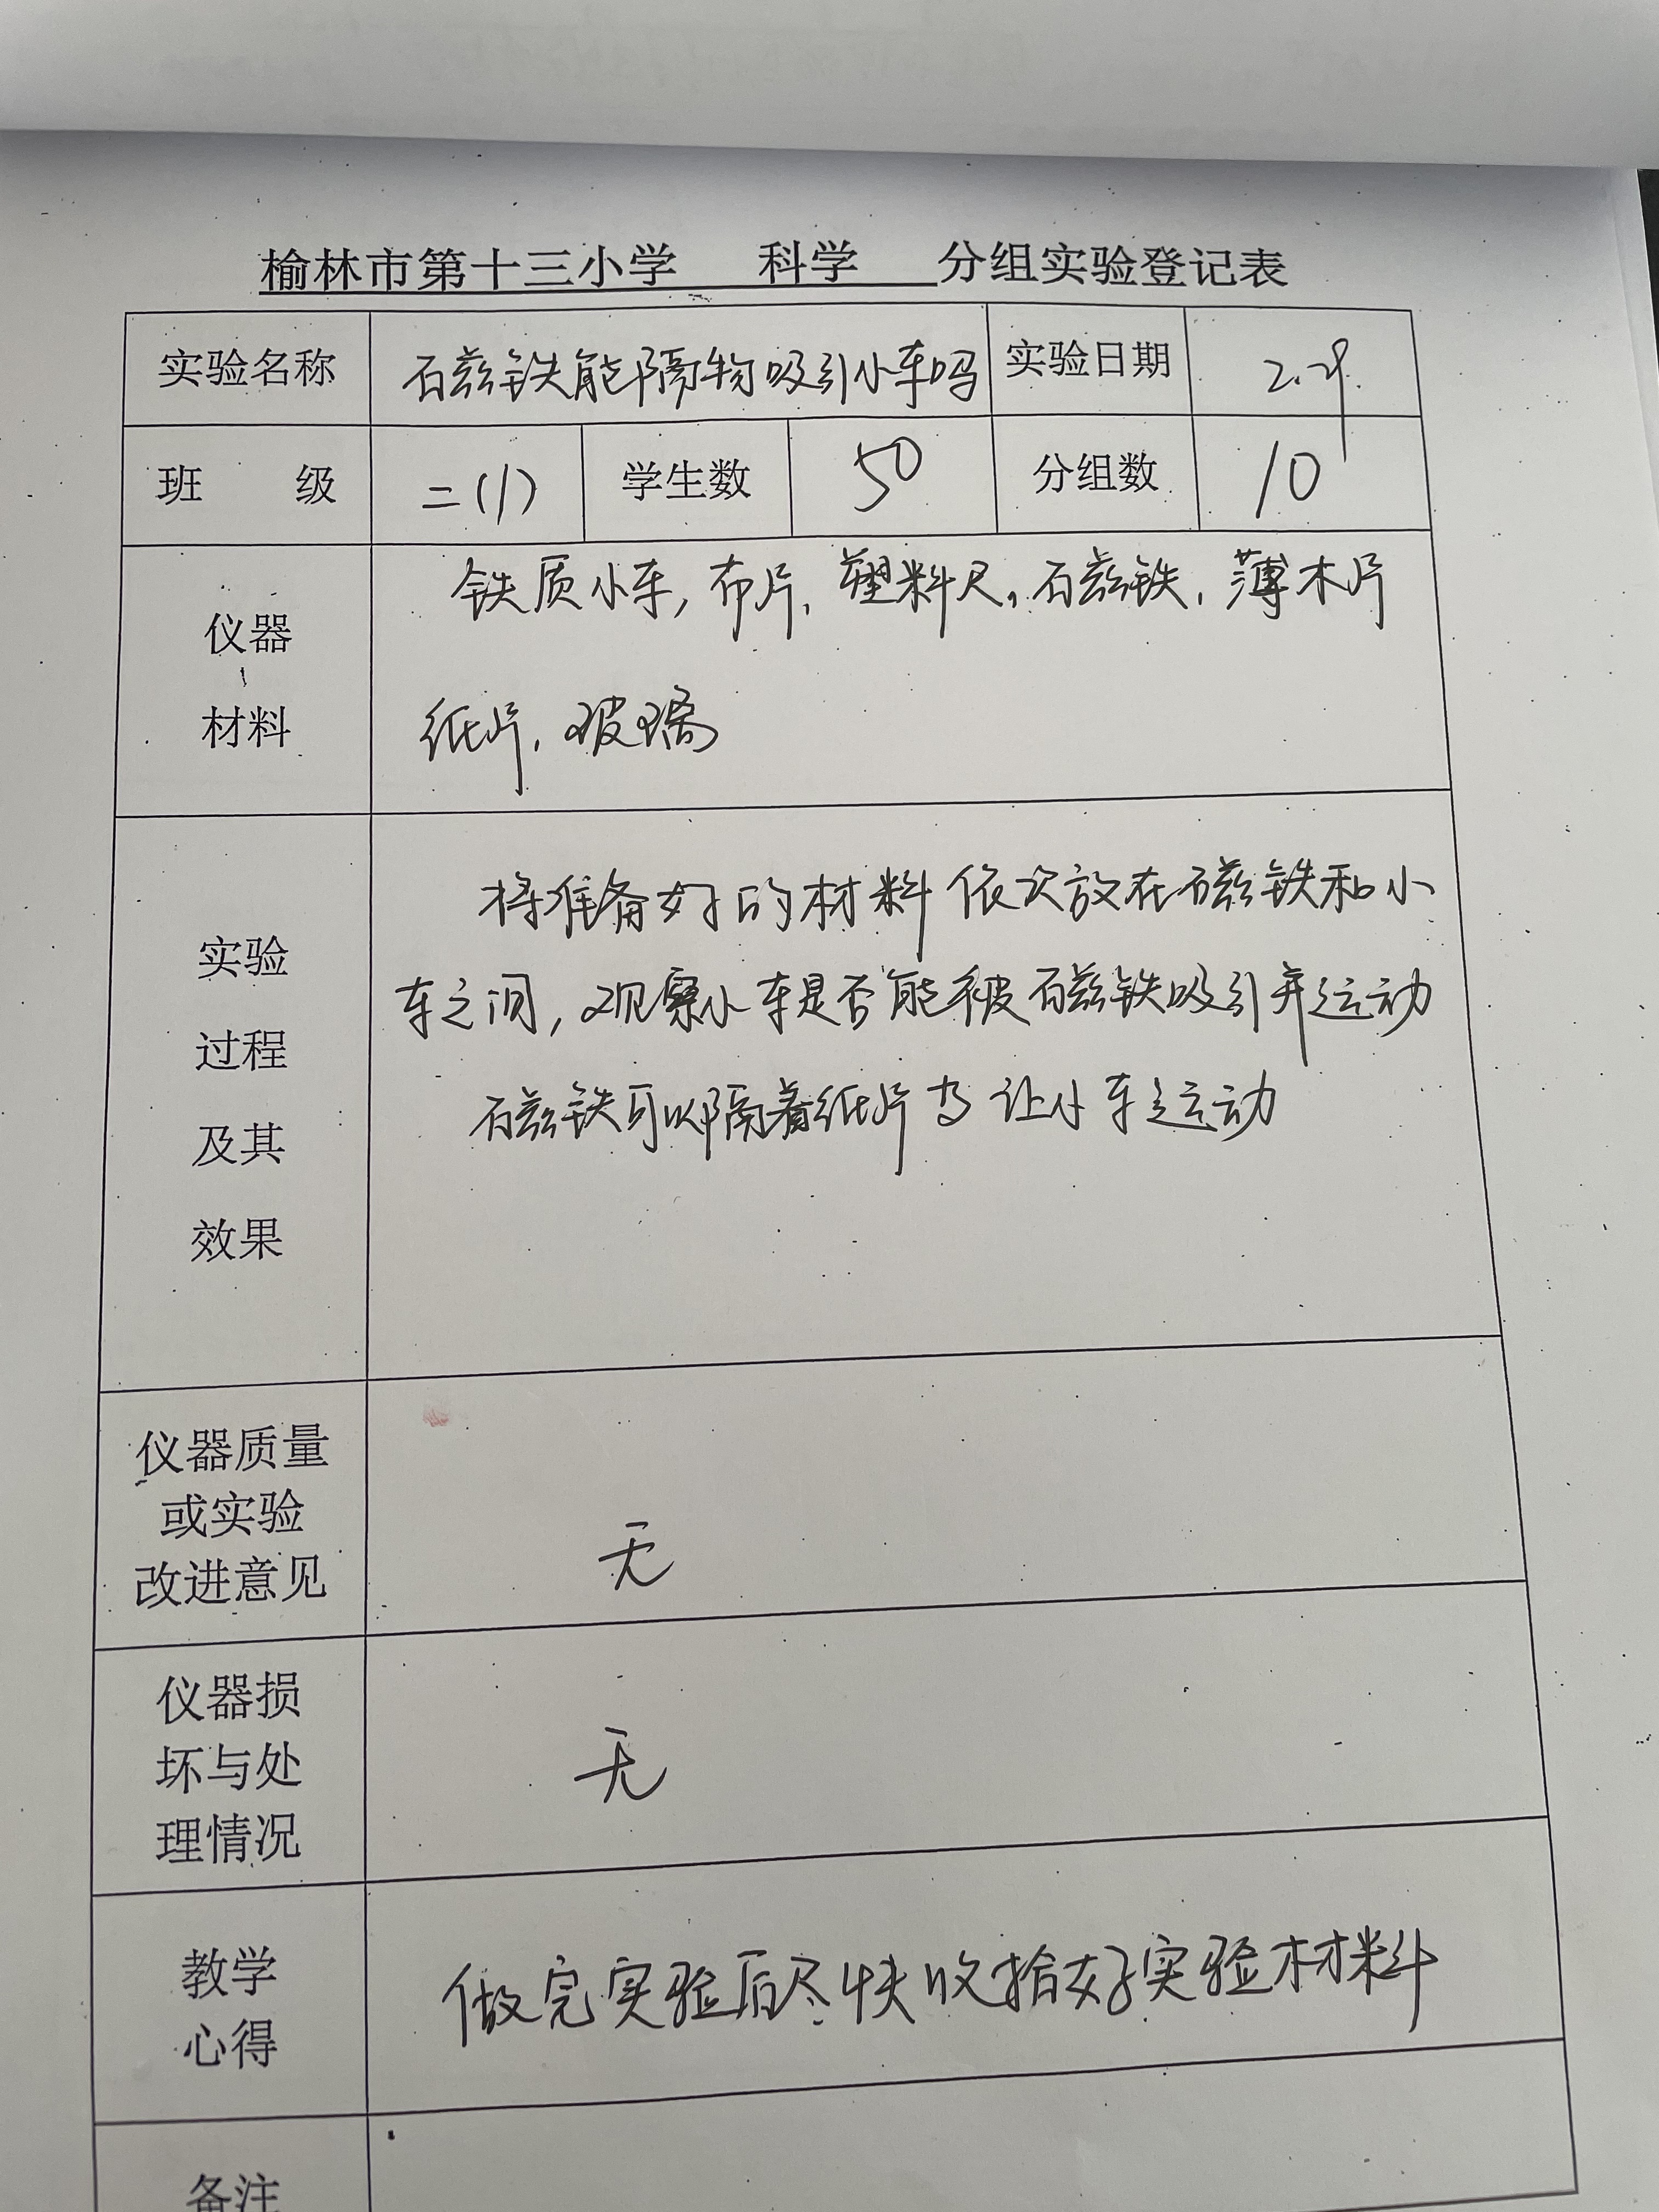 榆林市第十三小学 科学 分组实验登记表
实验名称 石磁铁能隔物吸引小车吗 实验日期 2.29.
班 级 二(1) 学生数 50 分组数 10
仪器
材料
铁质小车, 布片, 塑料尺, 石磁铁, 薄木片
纸片, 玻璃
实验
过程
及其
效果
将准备好的材料依次放在石磁铁和小
车之间, 观察小车是否能被石磁铁吸引并运动
石磁铁可以隔着纸片 让小车运动
仪器质量
或实验
改进意见
无
仪器损
坏与处
理情况
无
教学
心得
做完实验后尽快收拾好实验材料
备注